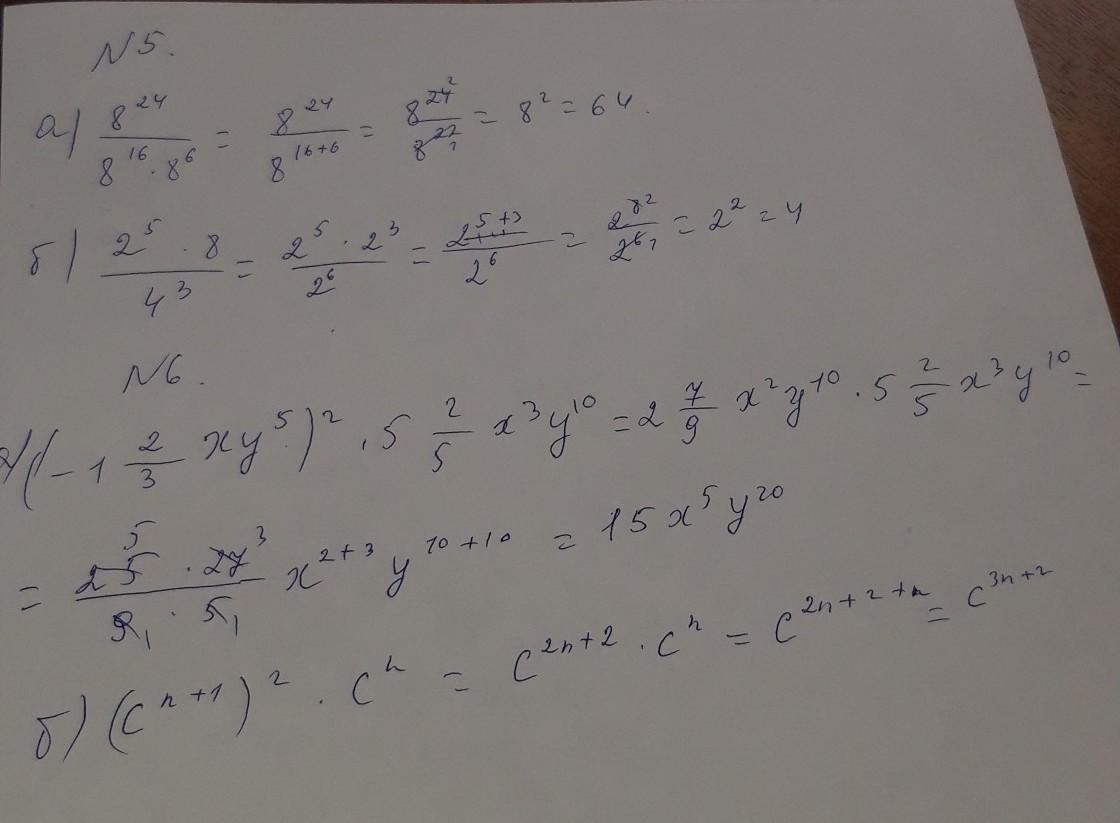 N5.
а) 8^24 / (8^16 · 8^6) = 8^24 / 8^(16+6) = 8^24 ^2 / 8^22 _1 = 8^2 = 64.
б) (2^5 · 8) / 4^3 = (2^5 · 2^3) / 2^6 = 2^(5+3) / 2^6 = 2^8 ^2 / 2^6 _1 = 2^2 = 4
N6.
а) (-1 2/3 xy^5)^2 · 5 2/5 x^3y^10 = 2 7/9 x^2y^10 · 5 2/5 x^3y^10 =
= (25^5 · 27^3) / (9_1 · 5_1) x^(2+3) y^(10+10) = 15x^5y^20
б) (c^(n+1))^2 · c^n = c^(2n+2) · c^n = c^(2n+2+n) = c^(3n+2)